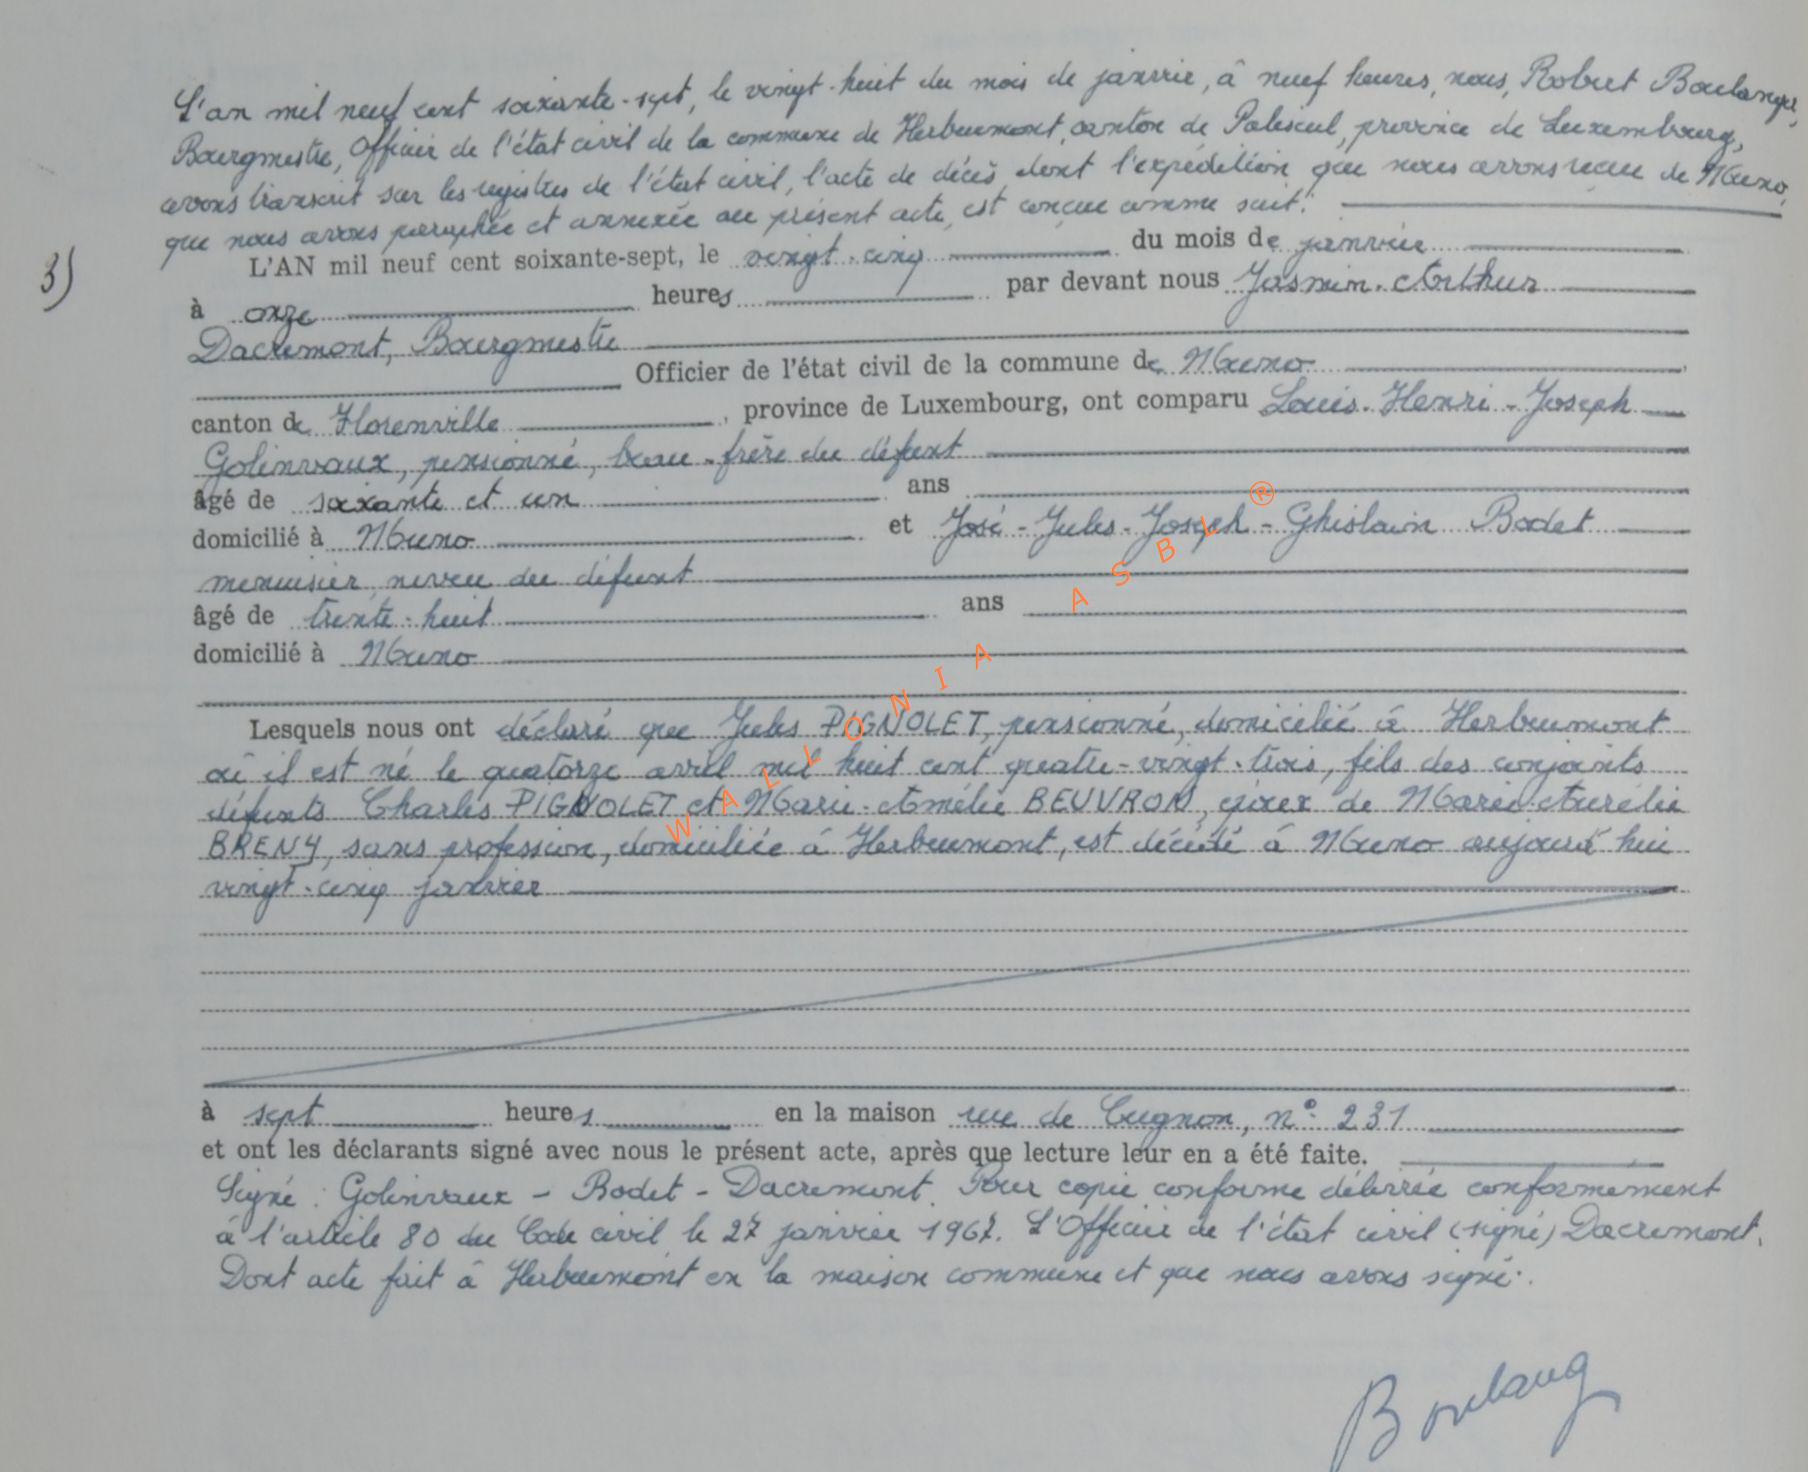 L'an mil neuf cent soixante-sept, le vingt-huit du mois de janvier, à neuf heures, nous, Robert Boulanger,
Bourgmestre, Officier de l'état civil de la commune de Herbeumont, canton de Paliseul, province de Luxembourg,
avons transcrit sur les registres de l'état civil, l'acte de décès dont l'expédition que nous avons reçue de Muno,
que nous avons paraphée et annexée au présent acte, est conçue comme suit:
3)
L'AN mil neuf cent soixante-sept, le vingt-cinq du mois de janvier
à onze heures par devant nous Jasmin-Arthur
Dacremont, Bourgmestre
Officier de l'état civil de la commune de Muno
canton de Florenville, province de Luxembourg, ont comparu Louis-Henri-Joseph
Golinvaux, pensionné, beau-frère du défunt
âgé de soixante et un ans
domicilié à Muno et José-Jules-Joseph-Ghislain Bodet
menuisier, neveu du défunt
âgé de trente-huit ans
domicilié à Muno
Lesquels nous ont déclaré que Jules PIGNOLET, pensionné, domicilié à Herbeumont
où il est né le quatorze avril mil huit cent quatre-vingt-trois, fils des conjoints
défunts Charles PIGNOLET et Marie-Amélie BEUVRON, époux de Marie-Aurélie
BRENY, sans profession, domiciliée à Herbeumont, est décédé à Muno aujourd'hui
vingt-cinq janvier
à sept heures en la maison rue de Cugnon, n° 231
et ont les déclarants signé avec nous le présent acte, après que lecture leur en a été faite.
Signé: Golinvaux - Bodet - Dacremont. Pour copie conforme délivrée conformément
à l'article 80 du Code civil le 27 janvier 1967. L'Officier de l'état civil (signé) Dacremont.
Dont acte fait à Herbeumont en la maison commune et que nous avons signé.
Boulang
WALLONIA ASBL ®